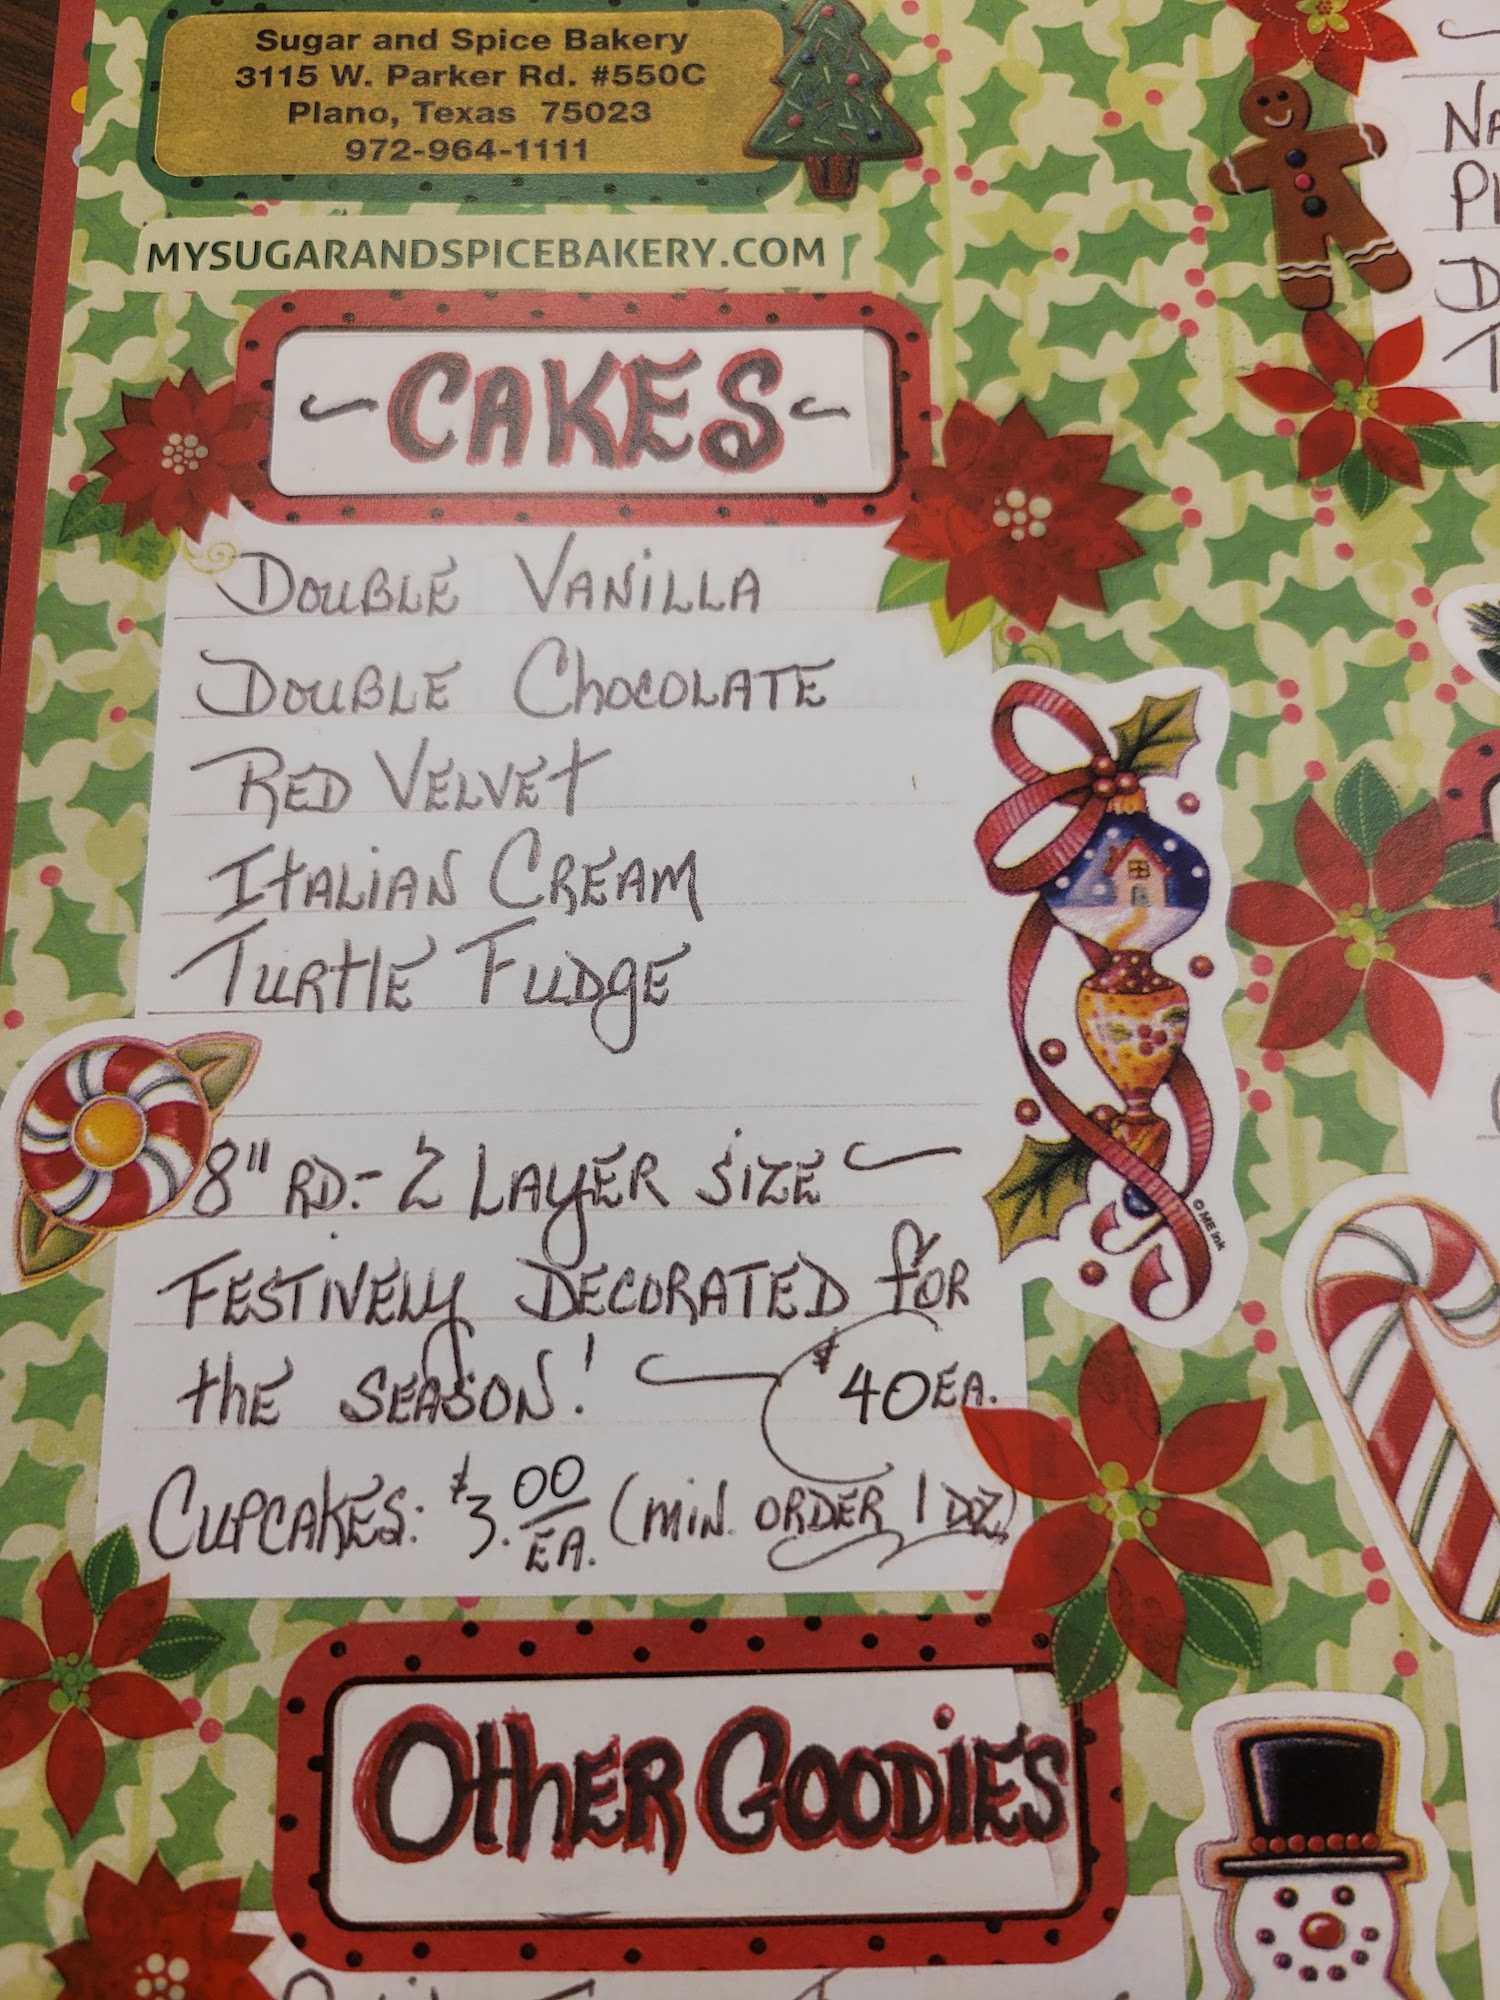 Sugar and Spice Bakery
3115 W. Parker Rd. #550C
Plano, Texas 75023
972-964-1111
MYSUGARANDSPICEBAKERY.COM
-CAKES-
DOUBLE VANILLA
DOUBLE CHOCOLATE
RED VELVET
ITALIAN CREAM
TURTLE FUDGE
8" RD.- 2 LAYER SIZE
FESTIVELY DECORATED for
the SEASON! $40 EA.
CUPCAKES: $3.00 EA. (MIN. ORDER 1 DOZ)
OTHER GOODIES
© ME Ink